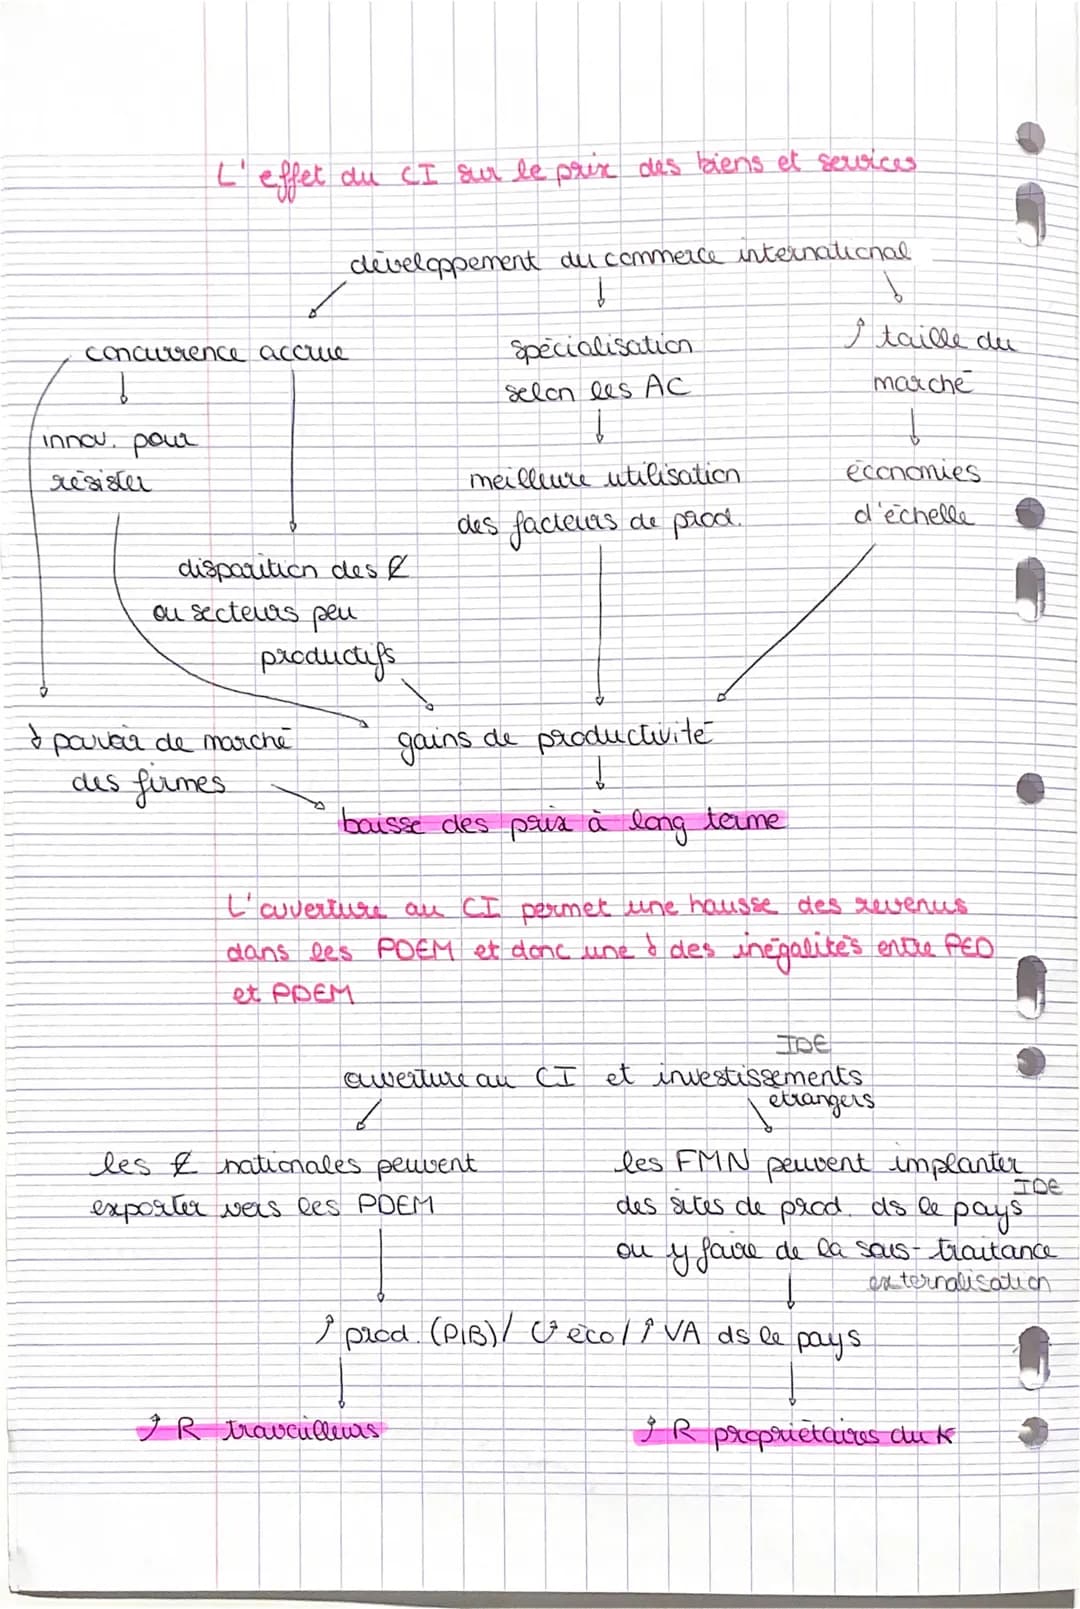 L'effet du CI sur le prix des biens et services
développement du commerce international
concurrence accrue
spécialisation
selon les AC
↑ taille du
marché
innov. pour
résister
meilleure utilisation
des facteurs de prod.
économies
d'échelle
disparition des E
ou secteurs peu
productifs
↓ pouvoir de marché
des firmes
gains de productivité
baisse des prix à long terme
L'ouverture au CI permet une hausse des revenus
dans les PDEM et donc une ↓ des inégalités entre PED
et PDEM
IDE
ouverture au CI et investissements
étrangers
les E nationales peuvent
exporter vers les PDEM
les FMN peuvent implanter
IDE
des sites de prod. ds le pays
ou y faire de la sous-traitance
externalisation
↑ prod. (PIB) / C° éco / ↑ VA ds le pays
↑ R travailleurs
↑ R propriétaires du K